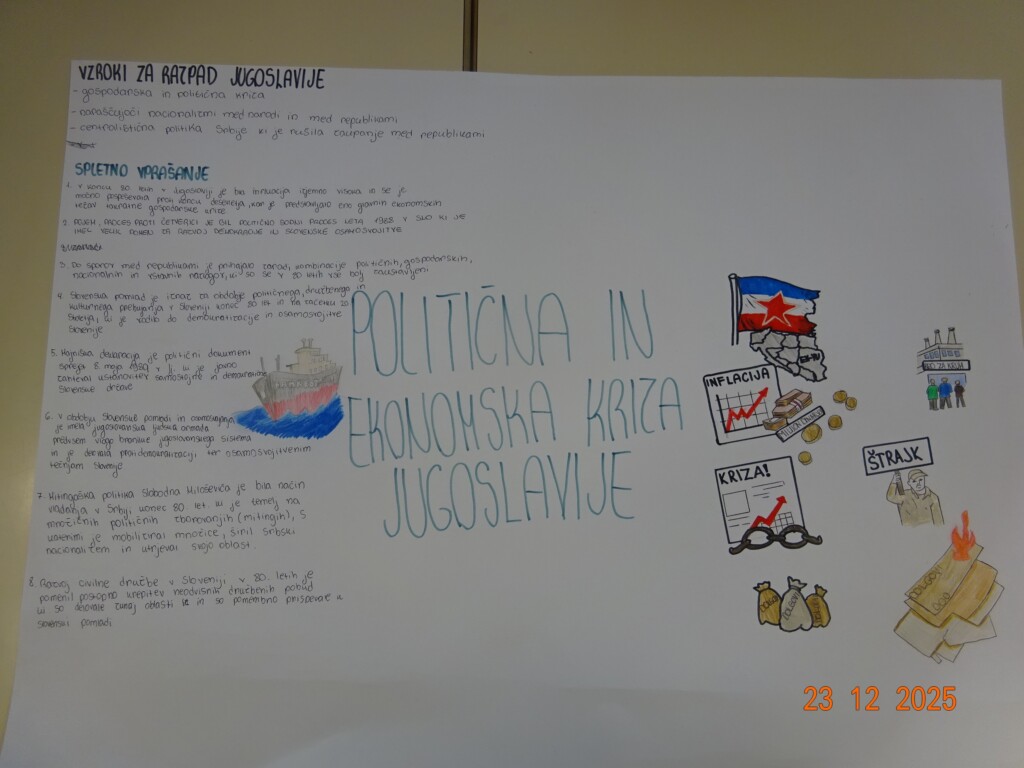 VZROKI ZA RAZPAD JUGOSLAVIJE
- gospodarska in politična kriza
- naraščajoči nacionalizmi med narodi in med republikami
- centralistična politika Srbije ki je rušila zaupanje med republikami
SPLETNO VPRAŠANJE
1. V koncu 80 letih v Jugoslaviji je bila inflacija izjemno visoka in se je
močno pospeševala proti koncu desetletja, kar je predstavljalo eno glavnih ekonomskih
težav takratne gospodarske krize
2. POJEM PROCES PROTI ČETVERICI JE BIL POLITIČNO SODNI PROCES LETA 1988 V SLO KI JE
IMEL VELIK POMEN ZA RAZVOJ DEMOKRACIJE IN SLOVENSKE OSAMOSVOJITVE
3. Do sporov med republikami je prihajalo zaradi kombinacije političnih, gospodarskih,
nacionalnih in ustavnih razlogov, ki so se v 80 letih vse bolj zaostrovali
4. Slovenska pomlad je izraz za obdobje političnega, družbenega in
kulturnega prebujanja v Sloveniji konec 80 let in na začetku 90
štetja, ki je vodilo do demokratizacije in osamosvojitve
Slovenije
5. Majniška deklaracija je politični dokument
sprejet 8. maja 1989 v lj. ki je javno
zahteval ustanovitev samostojne in demokratične
Slovenske države
6. V obdobju Slovenske pomladi in osamosvajanja
je imela jugoslovanska ljudska armada
predvsem vlogo branilke jugoslovanskega sistema
in je delovala proti demokratizaciji ter osamosvojitvenim
težnjam Slovenije
7. Mitingaška politika Slobodna Miloševića je bila način
vladanja v Srbiji konec 80 let. ki je temeljil na
množičnih političnih zborovanjih (mitingih), s
katerimi je mobiliziral množice, širil srbski
nacionalizem in utrjeval svojo oblast.
8. Razvoj civilne družbe v Sloveniji v 80. letih je
pomenil postopno krepitev neodvisnih družbenih pobud
ki so delovale zunaj oblasti in so pomembno prispevale k
slovenski pomladi
POLITIČNA IN
EKONOMSKA KRIZA
JUGOSLAVIJE
INFLACIJA
KRIZA!
ŠTRAJK
DOLGOVI
23 12 2025